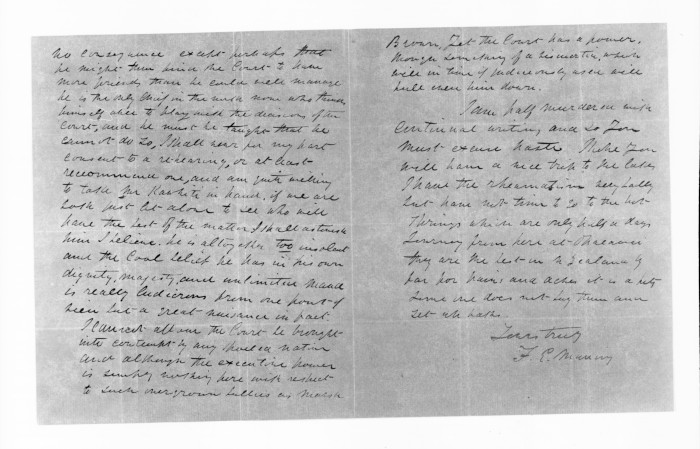 no consequence except perhaps that
he might then find the Court to have
more friends than he could well manage
he is the only chief in the north now who thinks
himself able to play with the decisions of the
Court, and he must be taught that he
cannot do so, I shall never for my part
consent to a rehearing, or at least
recommend one, and am quite willing
to take Mr Kawhiti in hand, if we are
both just let alone to see who will
have the best of the matter I shall astonish
him I believe. he is altogether too insolent
and the cool belief he has in his own
dignity, majesty, and unlimited mana
is really ludicrous from one point of
view but a great nuisance in fact.
I cannot allow the Court be brought
into contempt by any native
and although the executive power
is simply nothing here with respect
to such overgrown bullies as Marsh
Brown, yet the Court has a power,
though which
will in time if judiciously used will
pull even him down.
I am half murdered with
continual writing and so you
must excuse haste. Mike you
will have a nice trip to the Lakes
I have the rheumatism very badly
but have not time to go to the hot
springs which are only half a days
journey from here at Ohaeawai
they are the best in N Zealand by
far for pains and aches it is a pity
some one does not buy them and
set up baths.
Yours truly
F. E. Maning